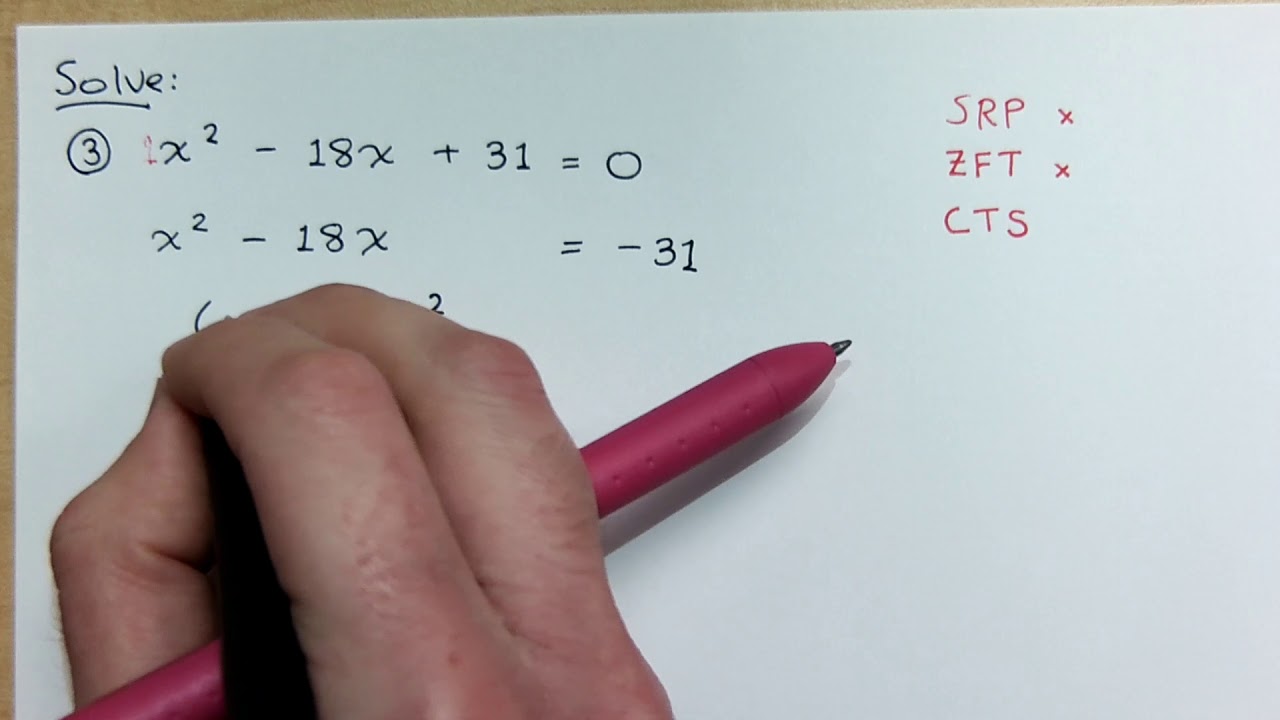 Solve:
③ 1x² - 18x + 31 = 0
x² - 18x = -31
( ²
SRP ×
ZFT ×
CTS